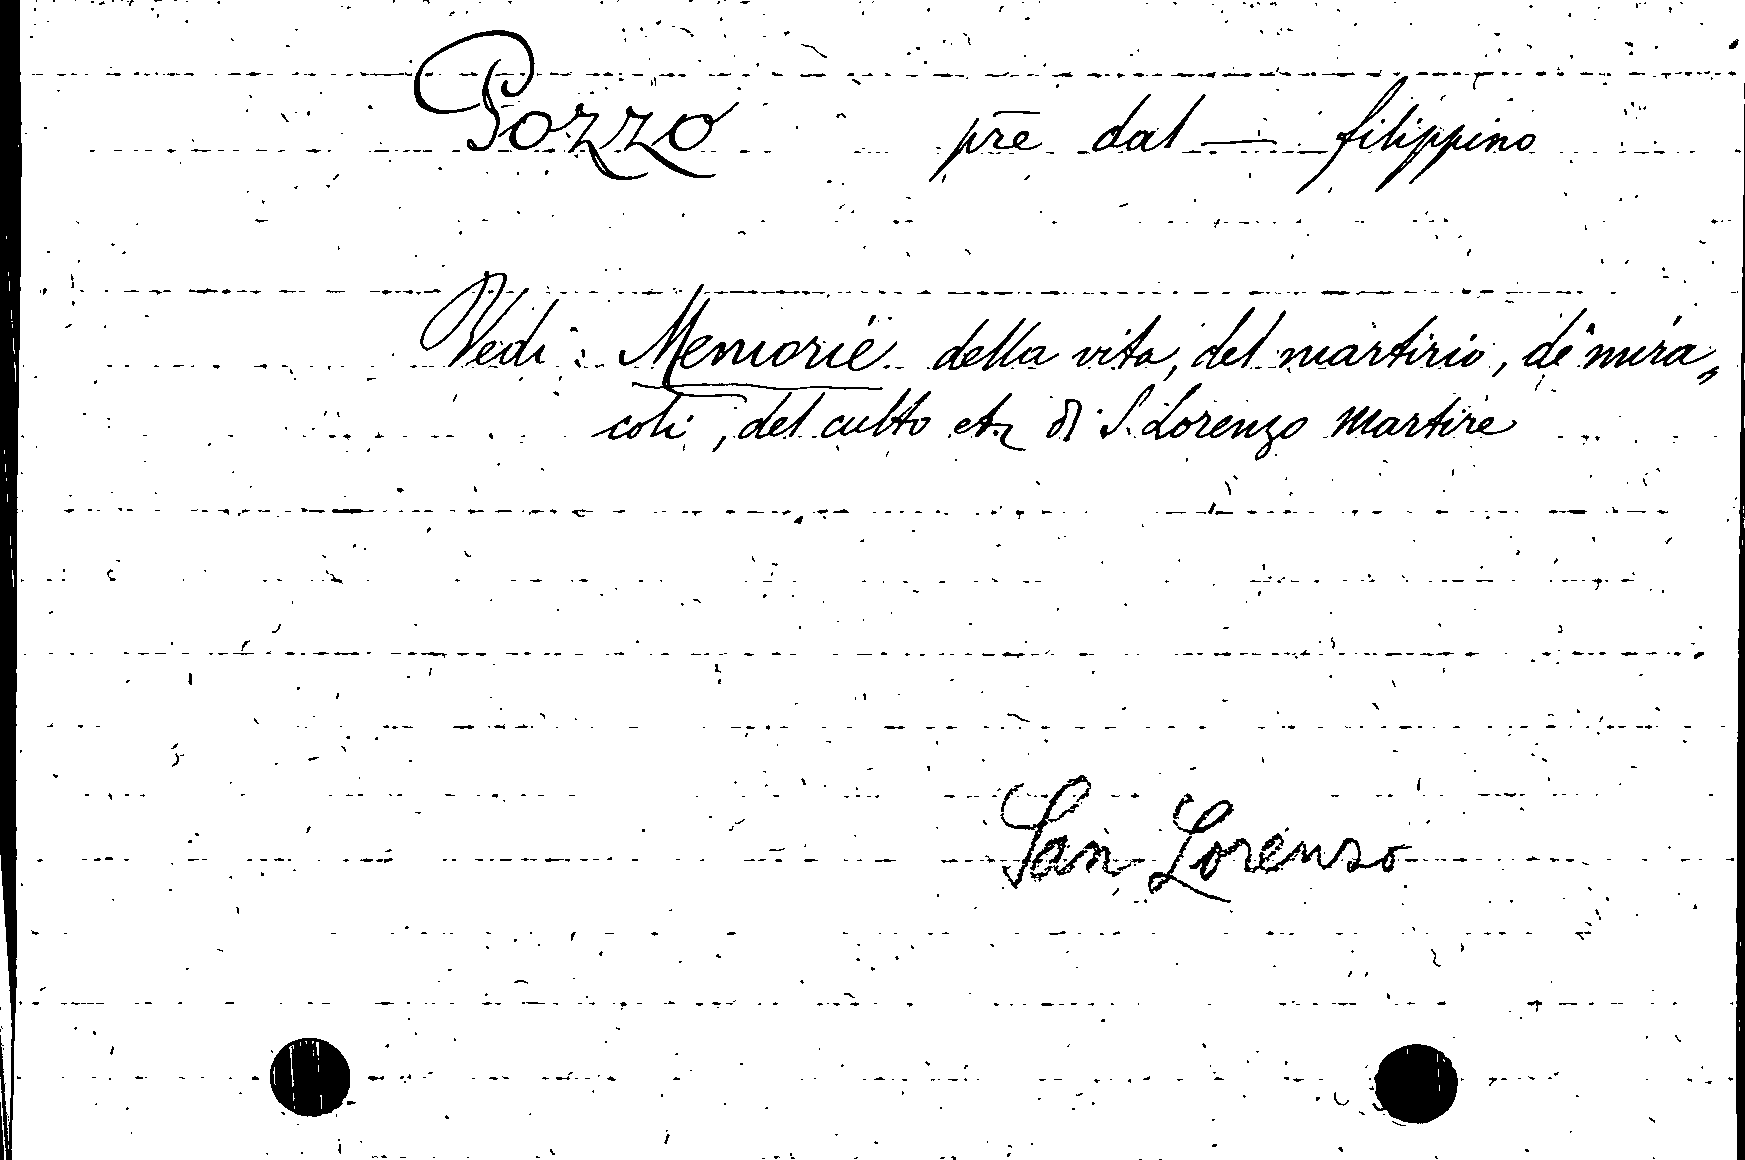 Pozzo prē dal — filippino
Vedi: Memorie della vita, del martirio, de' mira„
coli, del culto etc di S. Lorenzo Martire
San Lorenzo